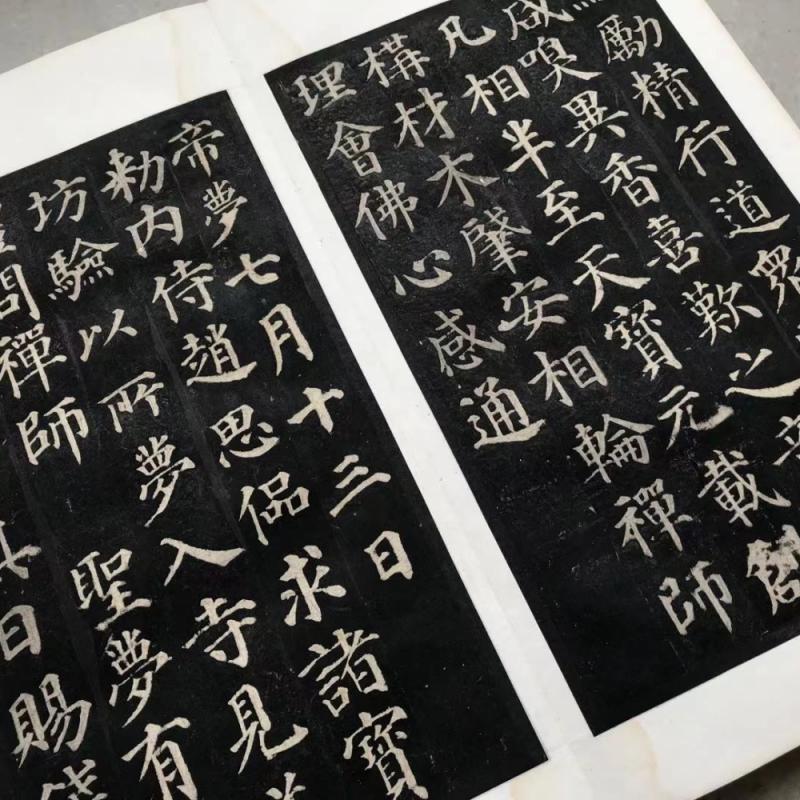 勵精行道眾
咸嗅異香喜歎之音
凡相半至天寶元載創
構材木肇安相輪禪師
理會佛心感通
帝夢七月十三日
勅內侍趙思偘求諸寶
坊驗以所夢入寺見
問禪師聖夢有
其日賜錢